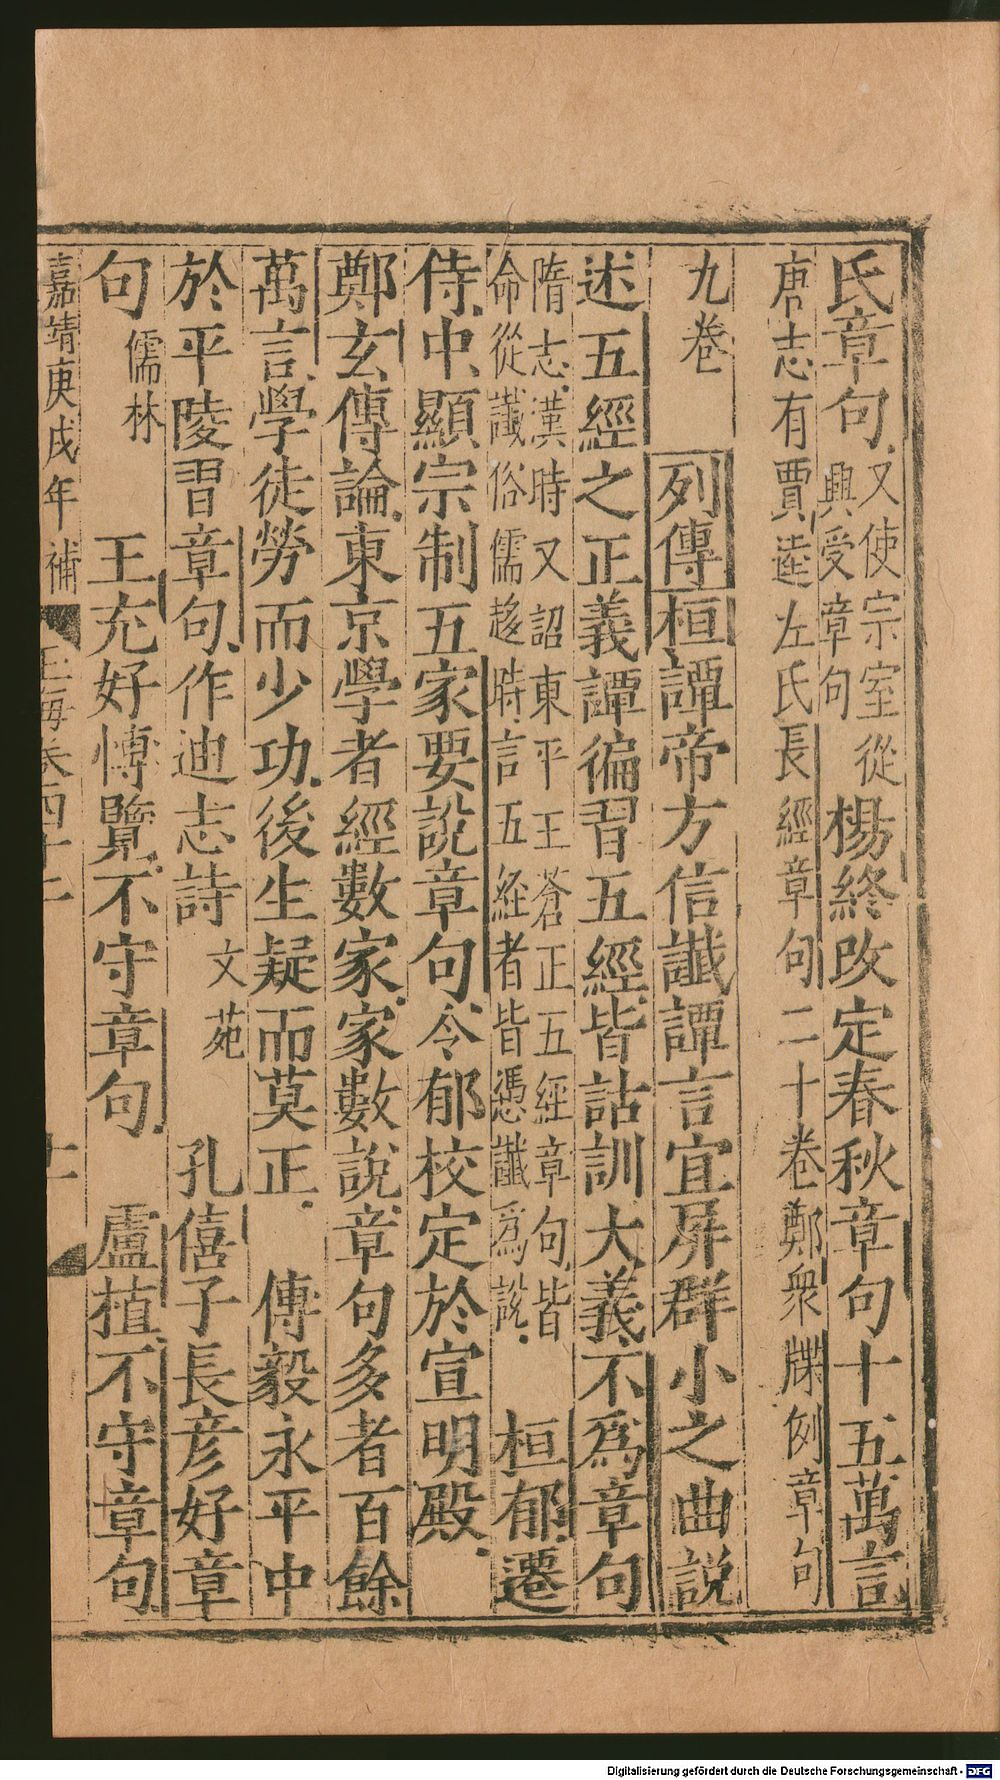 氏章句又使宗室從興受章句楊終改定春秋章句十五萬言
唐志有賈逵左氏長經章句二十卷鄭衆牒例章句
九卷 列傳桓譚帝方信讖譚言宜屏群小之曲説
述五經之正義譚徧習五經皆詁訓大義不爲章句
隋志漢時又詔東平王蒼正五經章句皆
命從讖俗儒趍時言五経者皆憑讖爲説 桓郁遷
侍中顯宗制五家要説章句令郁校定於宣明殿
鄭玄傳論東京學者經數家家數説章句多者百餘
萬言學徒勞而少功後生疑而莫正 傅毅永平中
於平陵習章句作迪志詩文苑 孔僖子長彦好章
句儒林 王充好博覽不守章句 盧植不守章句
嘉靖庚戌年補 玉海卷四十二 十一
Digitalisierung gefördert durch die Deutsche Forschungsgemeinschaft - DFG